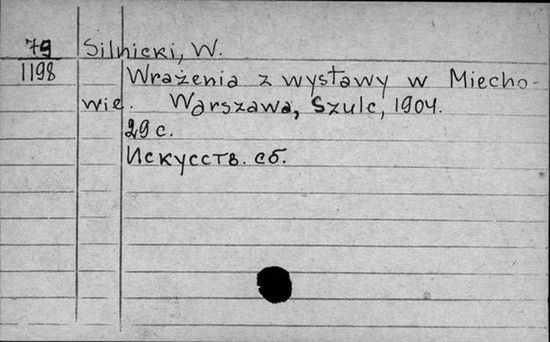 79 Silnicki, W.
1198 Wrażenia z wystawy w Miecho-
wie. Warszawa, Szulc, 1904.
29 с.
Искусств. сб.